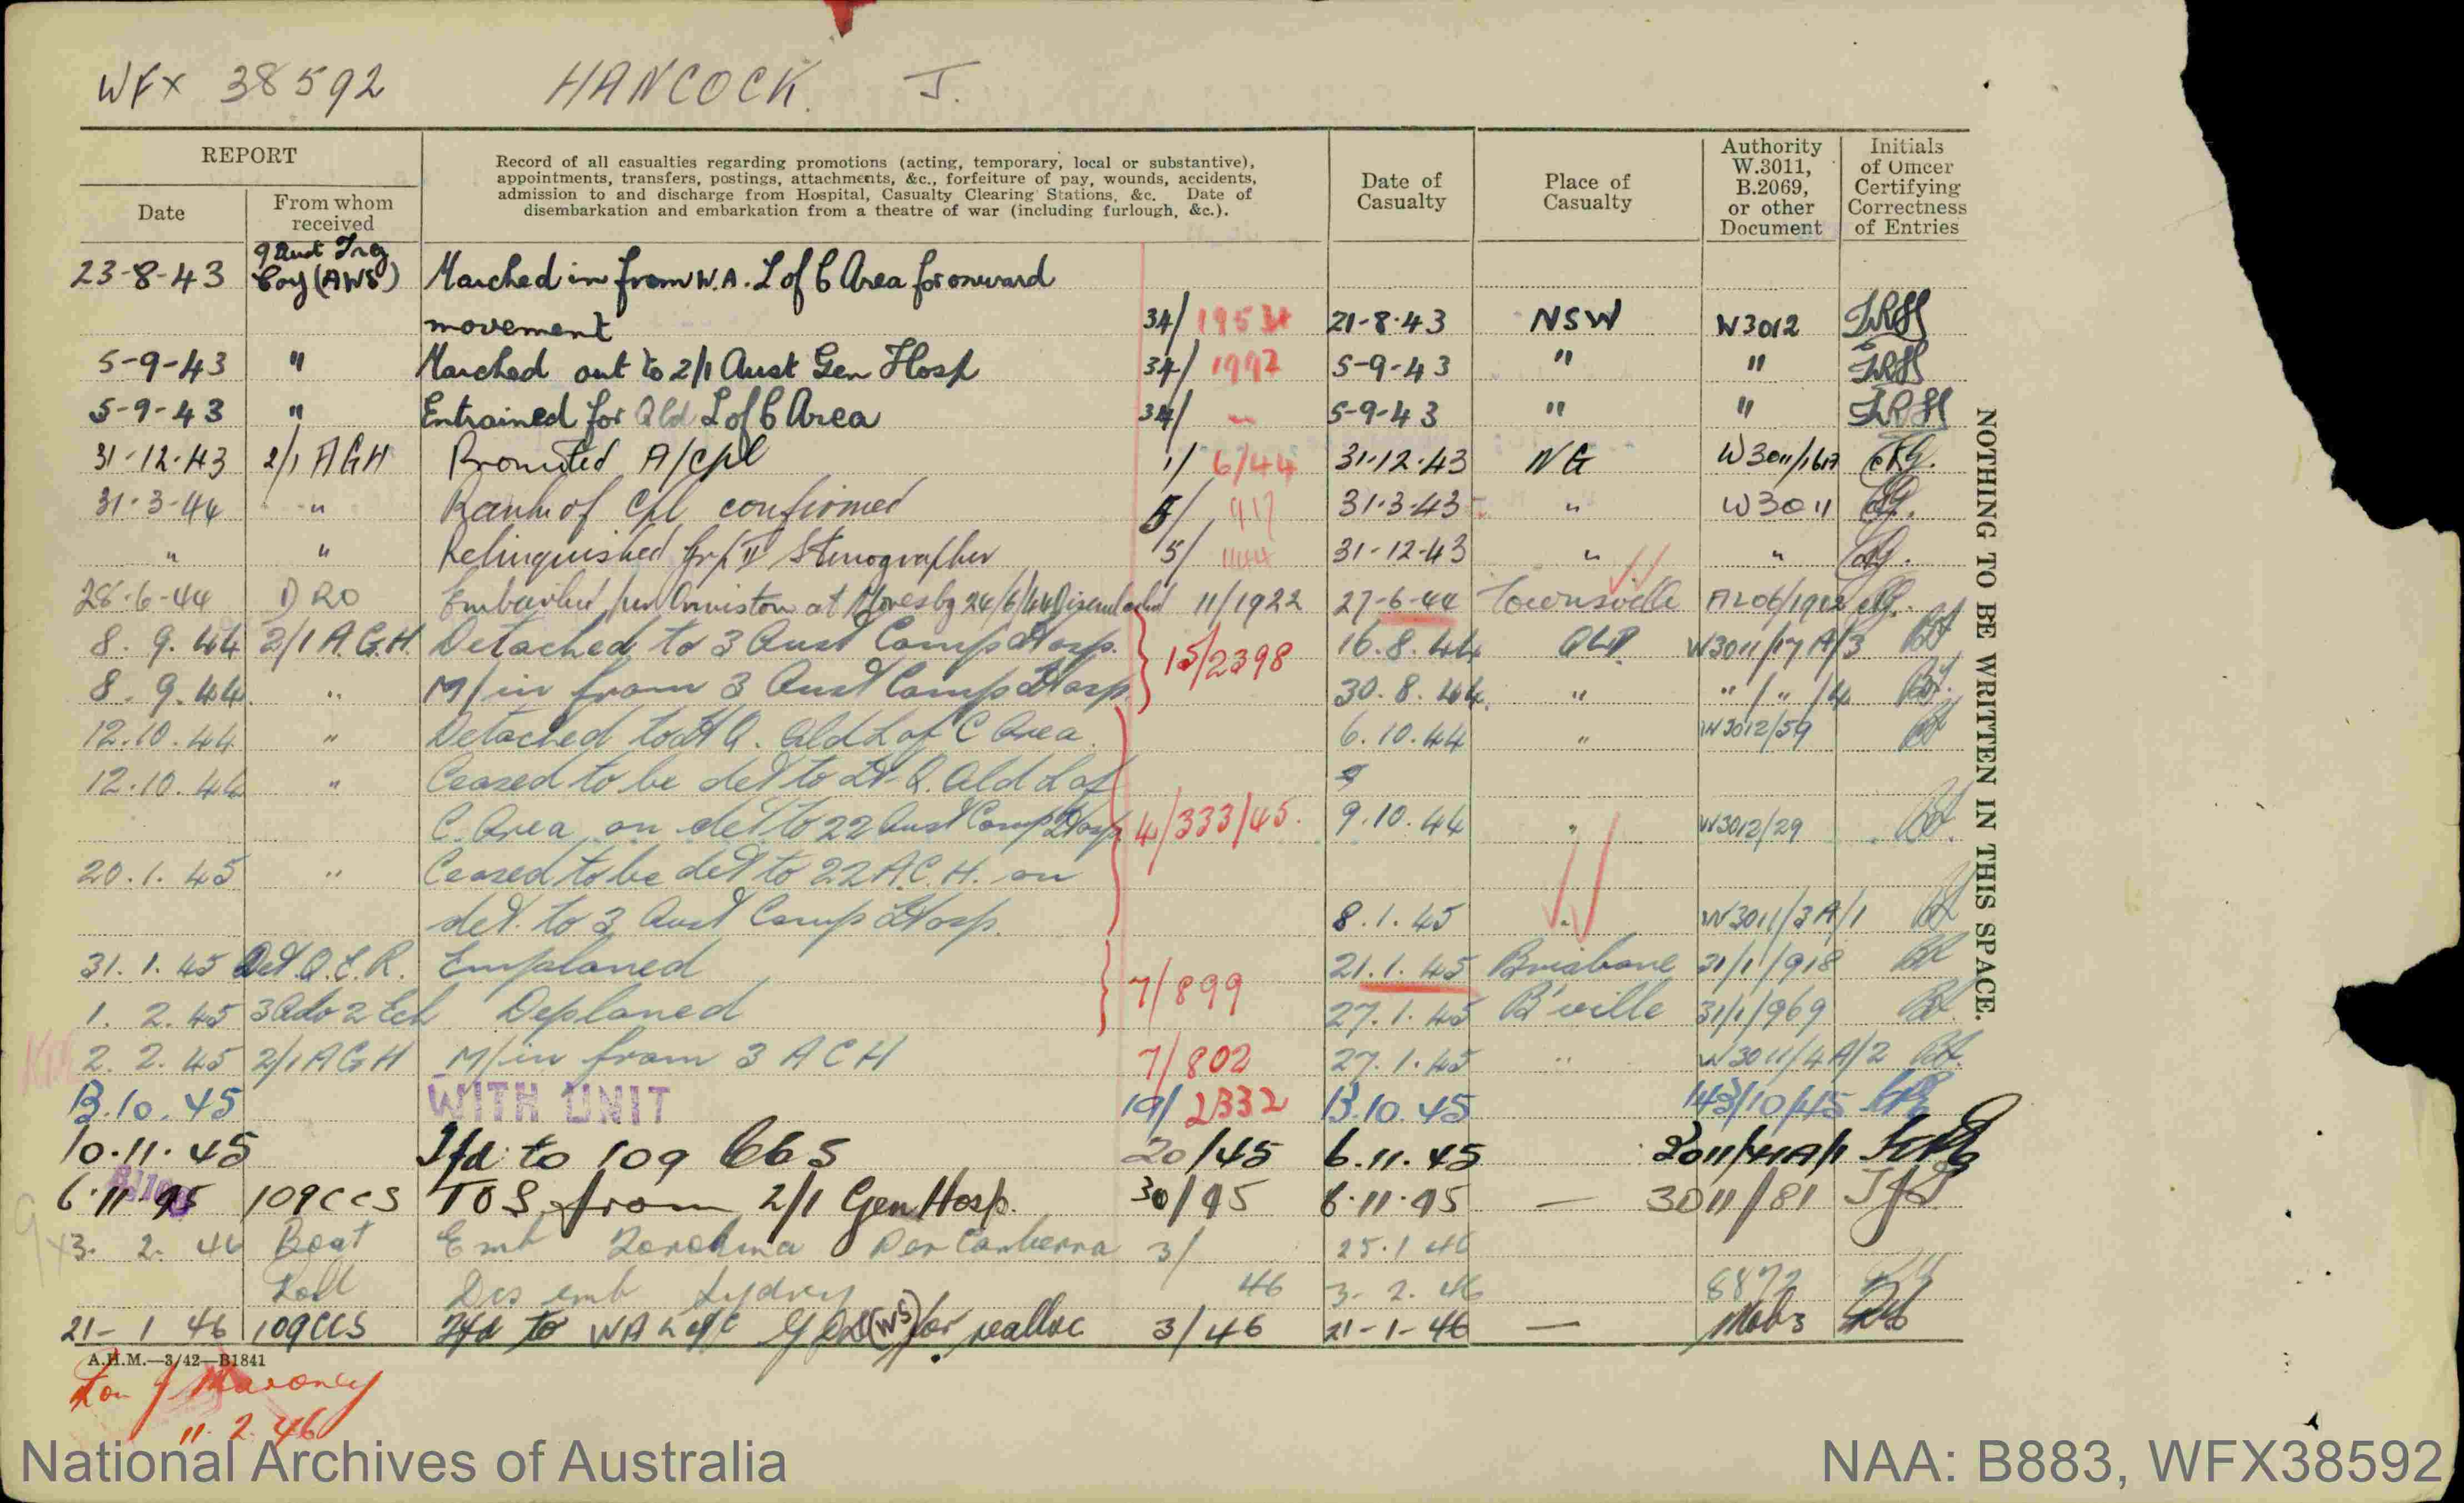 WFX 38592 HANCOCK. J.
REPORT
Date
From whom received
Record of all casualties regarding promotions (acting, temporary, local or substantive),
appointments, transfers, postings, attachments, &c., forfeiture of pay, wounds, accidents,
admission to and discharge from Hospital, Casualty Clearing Stations, &c. Date of
disembarkation and embarkation from a theatre of war (including furlough, &c.).
Date of Casualty
Place of Casualty
Authority W.3011, B.2069, or other Document
Initials of Officer Certifying Correctness of Entries
9 Aust Trg
23-8-43 Coy (AWS) Marched in from W.A. L of C Area for onward
movement 34/ 21-8-43 NSW W3012
5-9-43 " Marched out to 2/1 Aust Gen Hosp 34/ 1992 5-9-43 " "
5-9-43 " Entrained for Qld L of C Area 34/ — 5-9-43 " "
31-12-43 2/1 AGH Promoted A/Cpl 1/ 6/44 31-12-43 NG W3011
31-3-44 " Rank of Cpl confirmed 5/ 917 31-3-43 " W3011
" " Relinquished Grp II Stenographer 5/ 31-12-43 " "
28-6-44 DRO Embarked per Ormiston at Moresby 24/6/44 Disembarked 11/1922 27-6-44 Townsville
8. 9. 44 2/1 A.G.H. Detached to 3 Aust Camp Hosp. 15/2398 16. 8. 44 QLD. W3011/17A/3
8. 9. 44 " M/in from 3 Aust Camp Hosp. 30. 8. 44. " " / " /4
12.10.44 " Detached to H.Q. Qld L of C Area. 6.10.44 " W3012/59
12.10.44 " Ceased to be det to H.Q. Qld L of
C. Area on det to 22 Aust Camp Hosp 4/333/45. 9.10.44 " W3012/29
20.1.45 " Ceased to be det to 22 A.C.H. on
det. to 3 Aust Camp Hosp. 8.1.45 " W3011/3A/1
31.1.45 Det. Q.E.R. Emplaned 7/899 21.1.45 Brisbane 31/1/918
1. 2. 45 2 Ech Deplaned 27.1.45 B'ville 31/1/969
2. 2. 45 2/1 AGH M/in from 3 A C H 7/802 27.1.45 " W3011/4A/2
13.10.45 WITH UNIT 19/2332 13.10.45 143/10/45
10.11.45 Tfd to 109 CCS 20/45 6.11.45 3011/41A/1
6.11.45 109CCS TOS from 2/1 Gen Hosp. 30/45 6.11.45 — 3011/81
3. 2. 46 Boat Emb Torokina Per Canberra 3/ 25.1.46
Roll Disemb Sydney 46 3. 2. 46 8872
21-1 46 109CCS Tfd to WA L of C GDD(WS) for realloc 3/46 21-1-46 —
NOTHING TO BE WRITTEN IN THIS SPACE.
A.H.M.—3/42—B1841
11. 2. 46
National Archives of Australia
NAA: B883, WFX38592